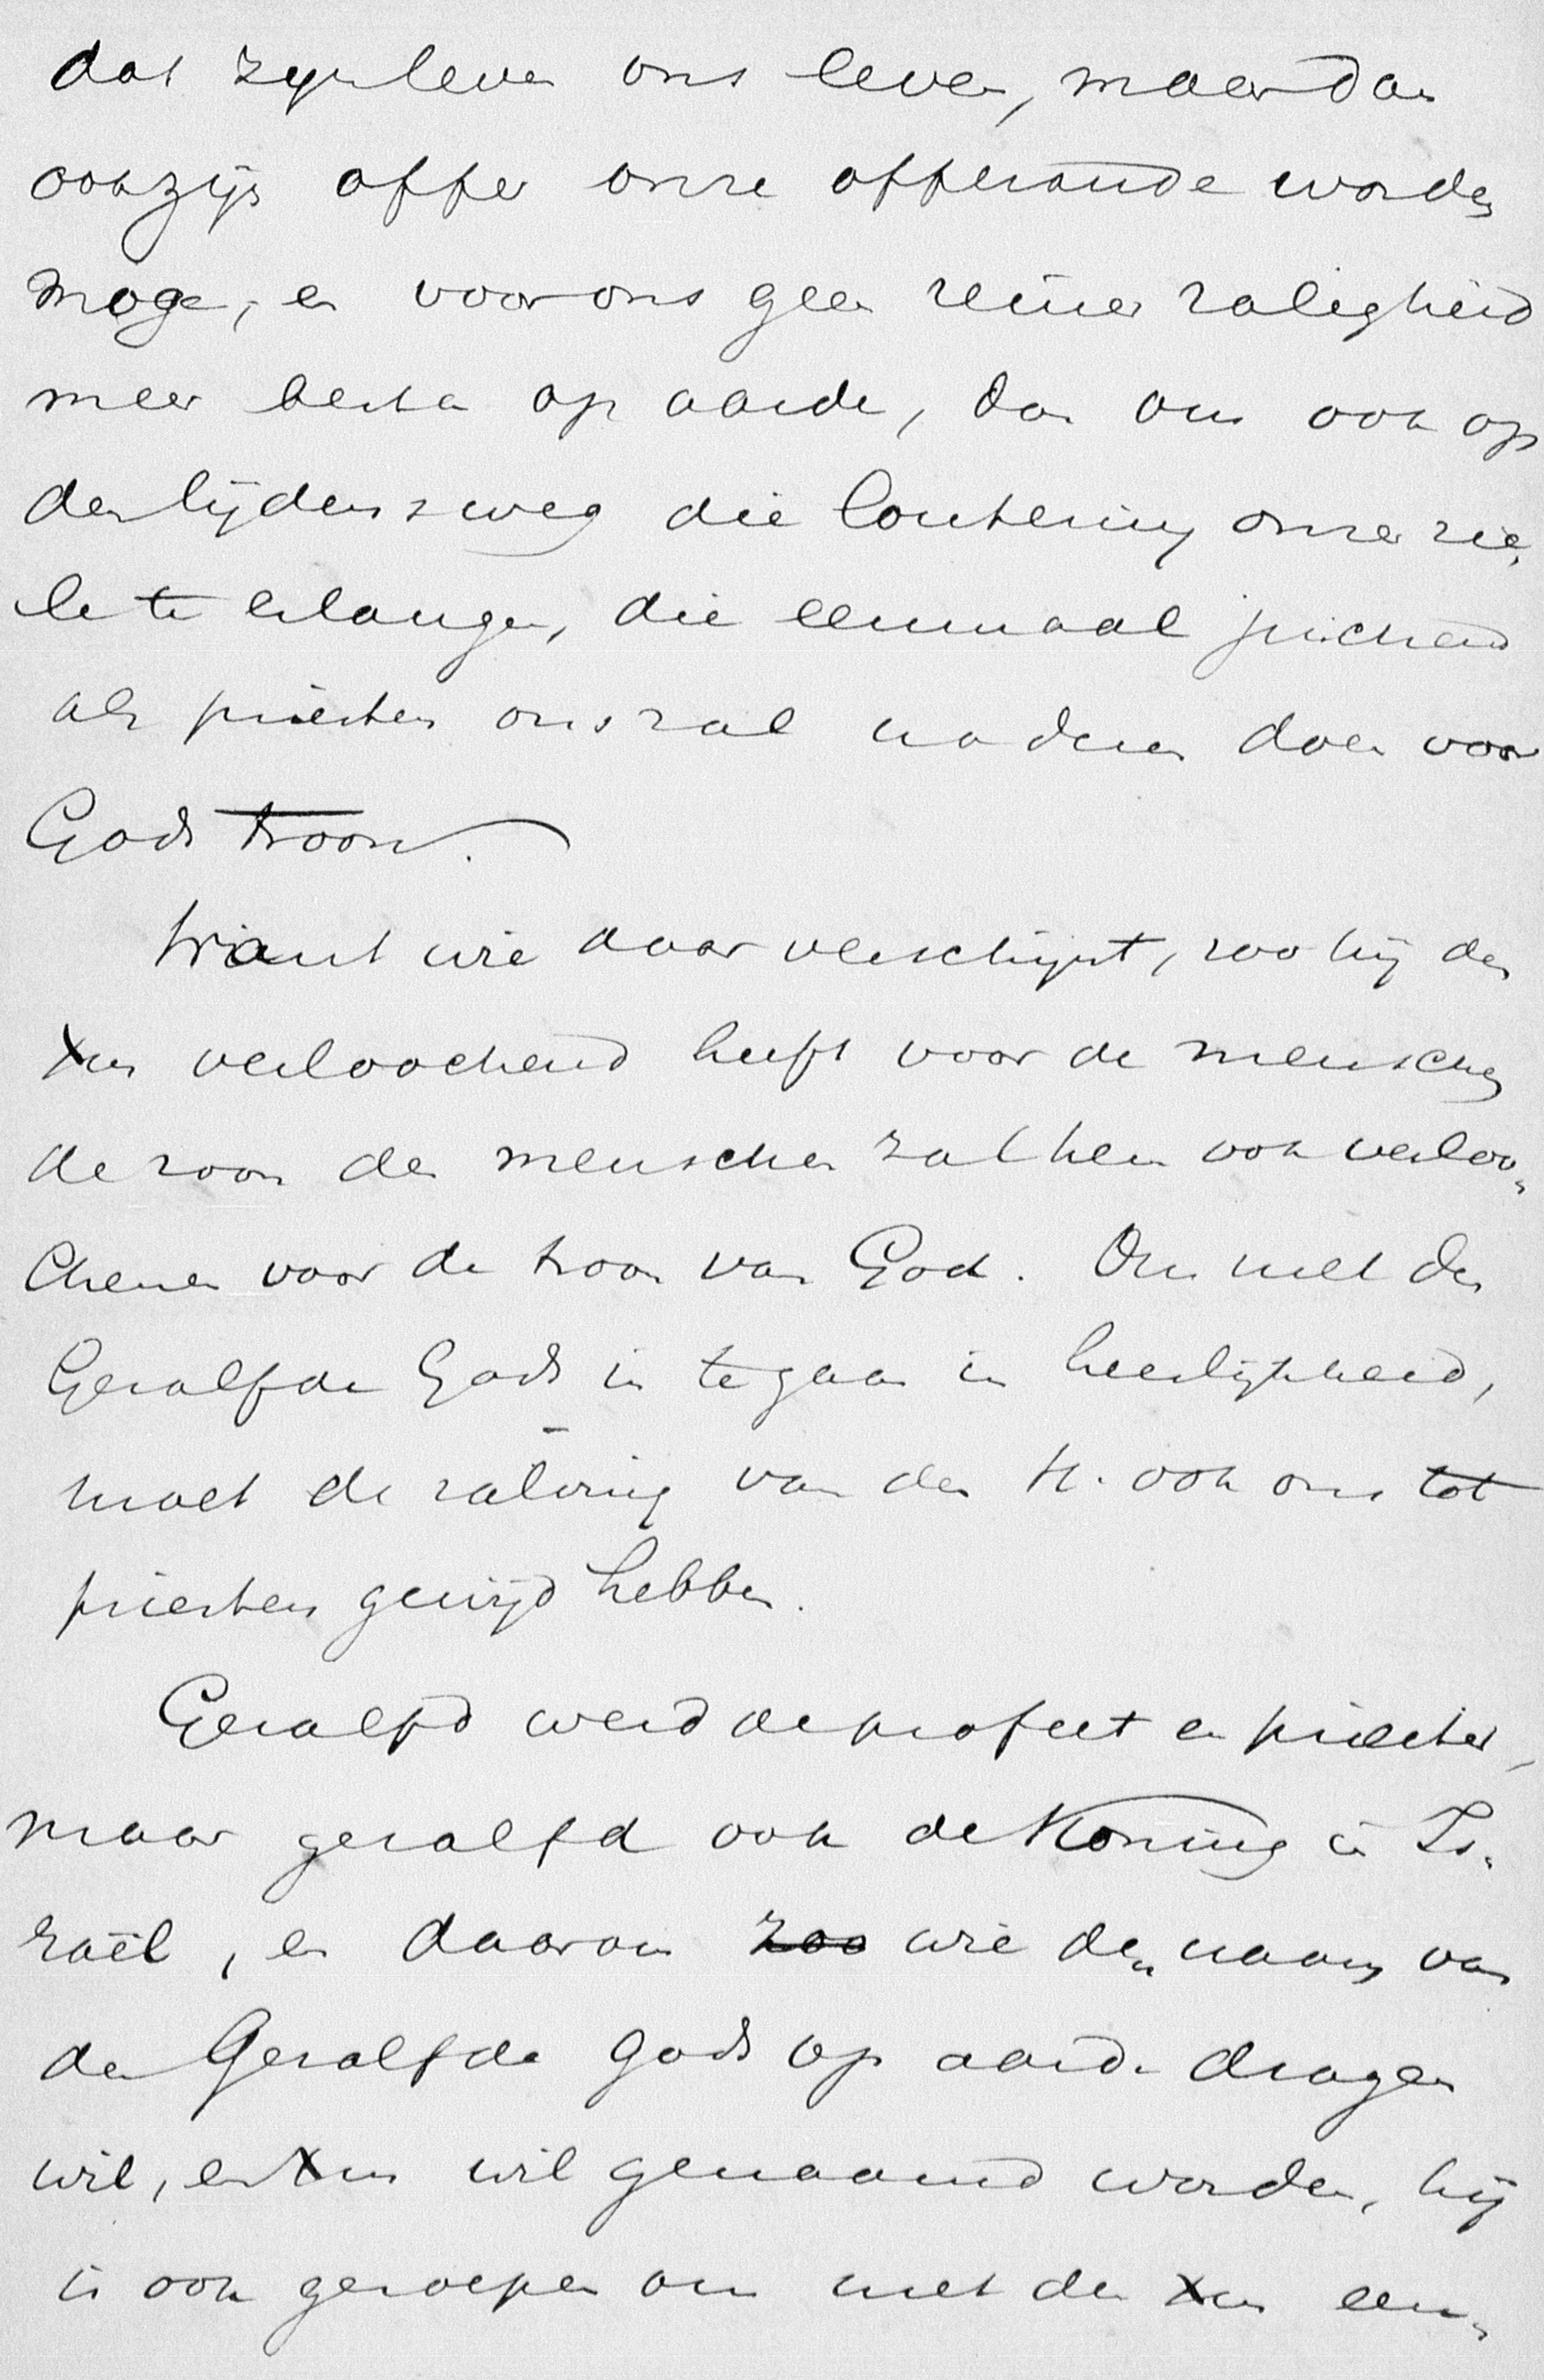 dat zijn leven ons leven, maar dan
ook zijn offer onze offerande worden
moge, en voor ons geen reiner zaligheid
meer besta op aarde, dan om ook op
den lijdensweg die loutering onzer zie-
le te erlangen, die eenmaal juichend
als priesters ons zal naderen doen voor
Gods troon.
Want wie daar verschijnt, zoo hij den
Xus verloochend heeft voor de menschen
de zoon des menschen zal hem ook verloo-
chenen voor de troon van God. Om met den
Gezalfde Gods in te gaan in heerlijkheid,
moet de zalving van den H. ook ons tot
priesters gewijd hebben.
Gezalfd werd de profeet en priester,
maar gezalfd ook de Koning in Is-
raël, en daarom zoo wie den naam van
den Gezalfde Gods op aarde dragen
wil, en Xen wil genaamd worden, hij
is ook geroepen om met den Xus een-